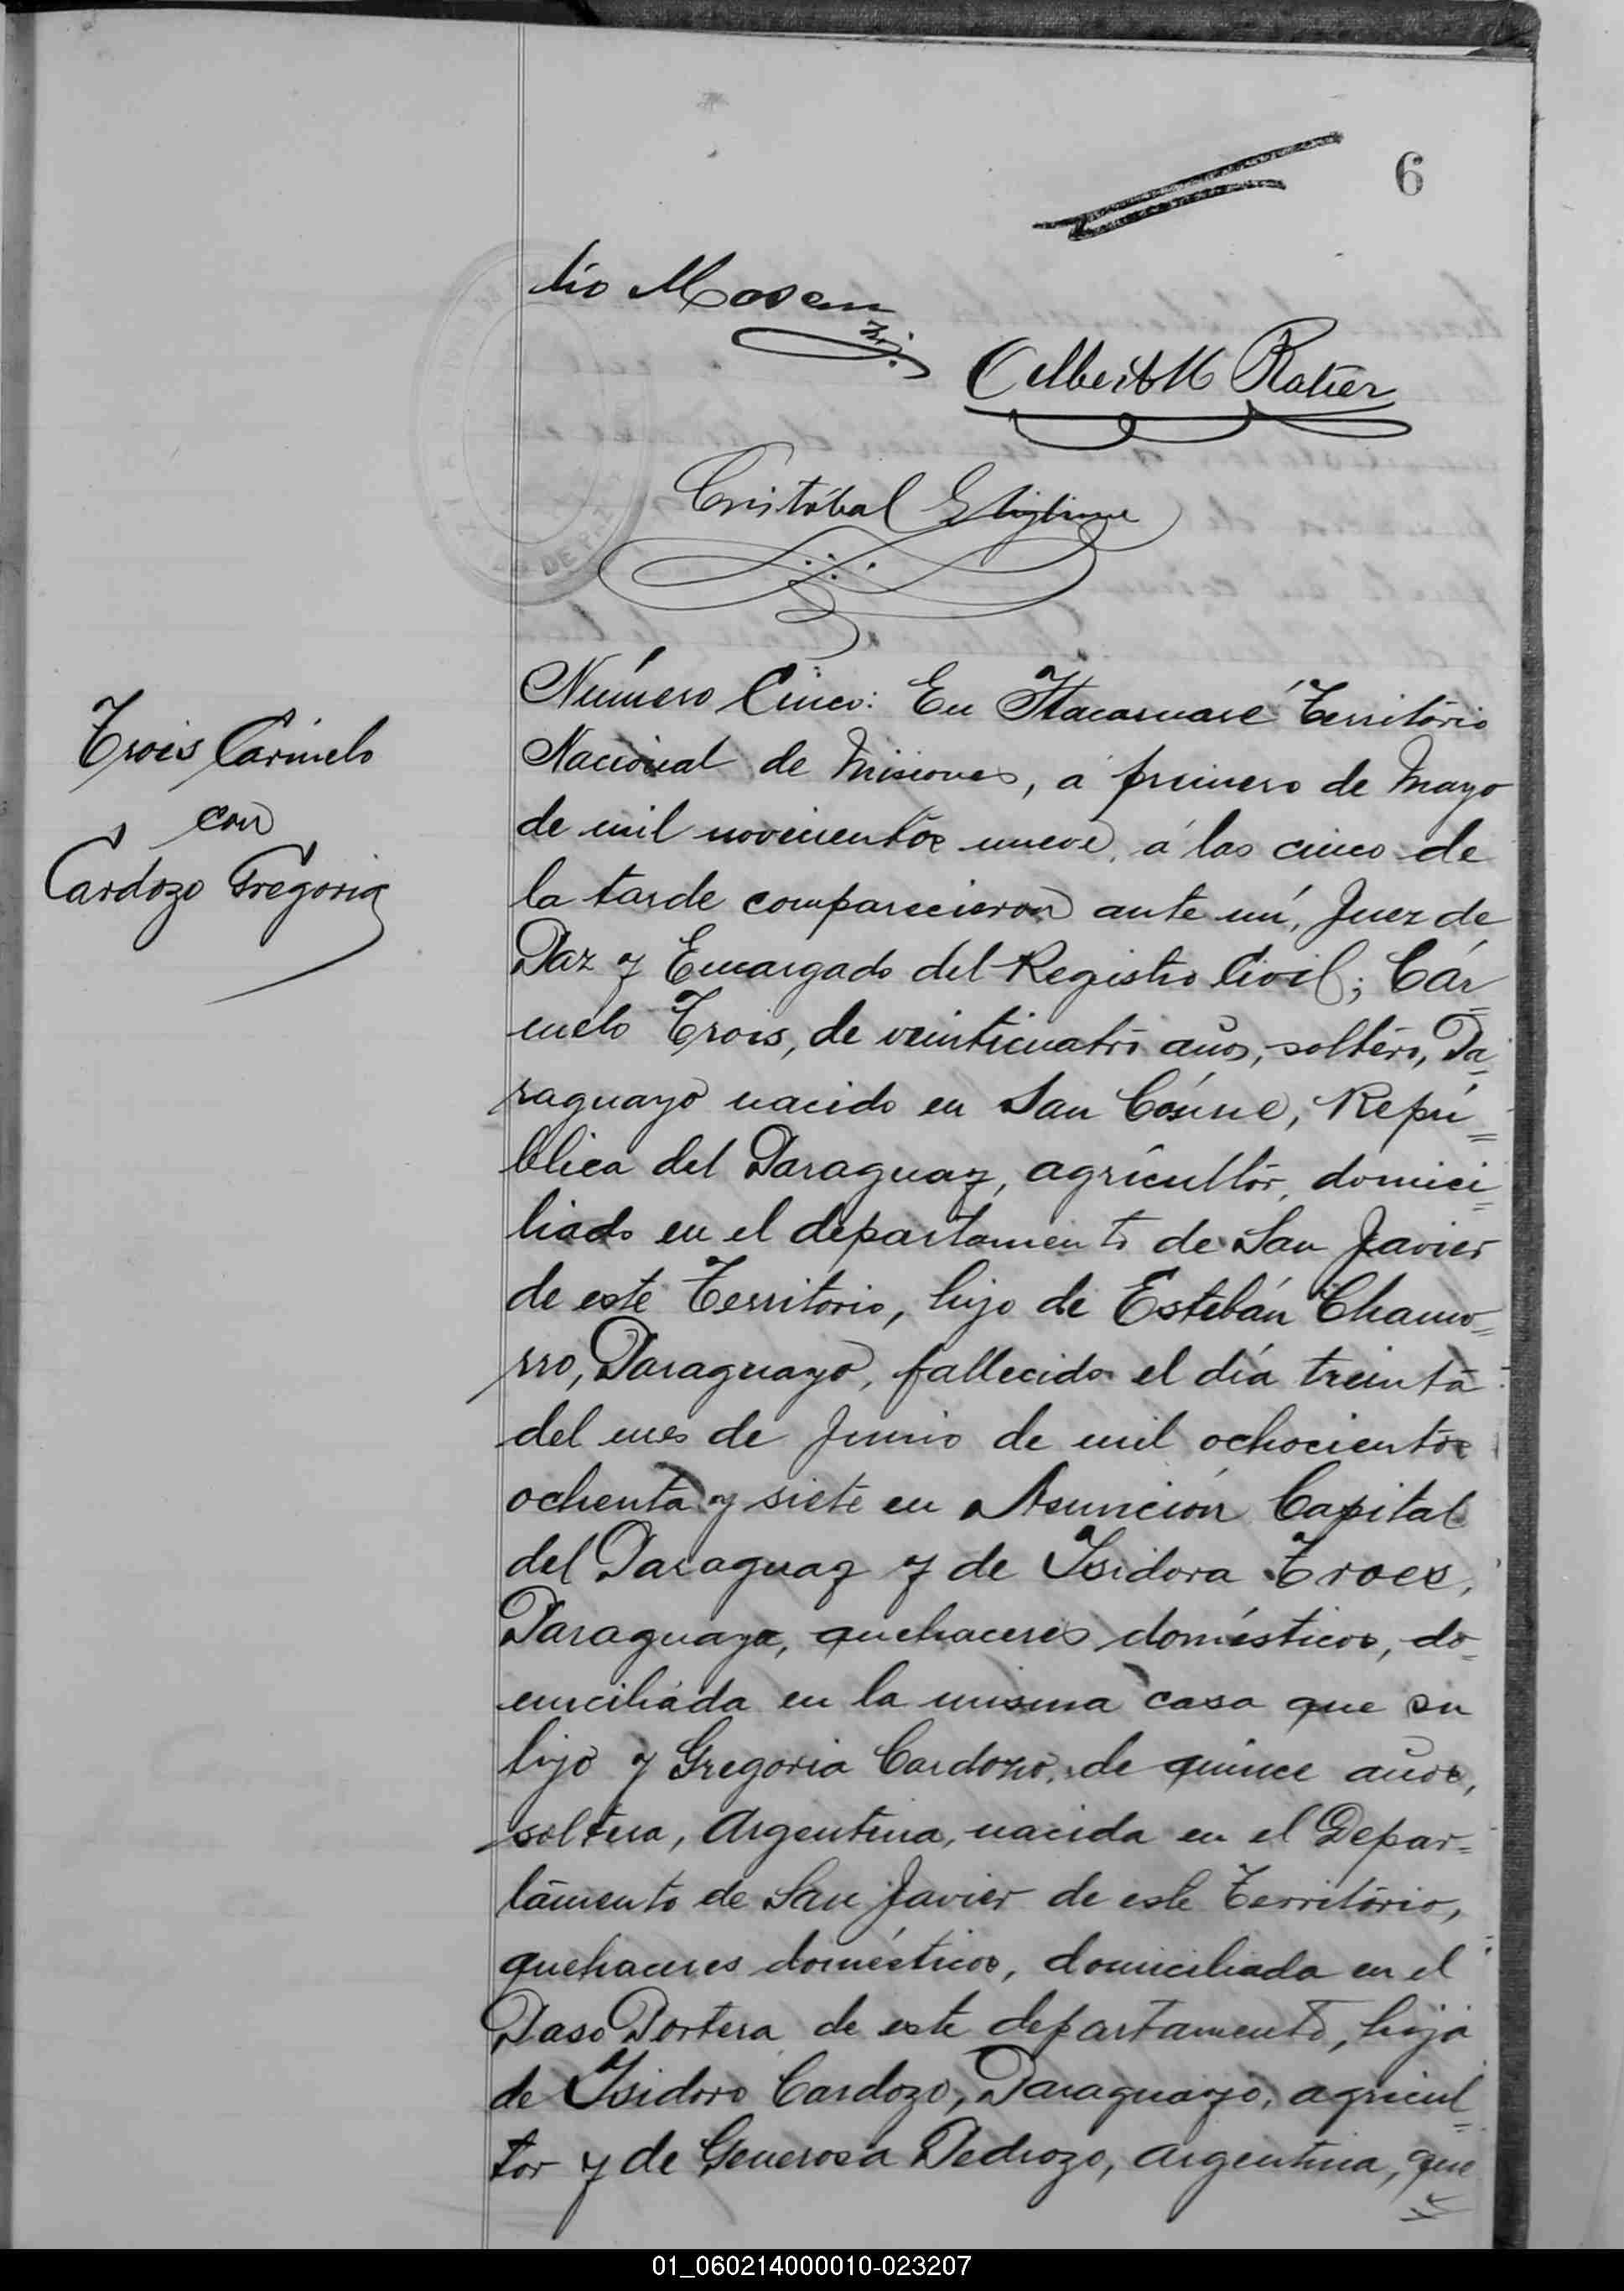 6
lio Mosem
Albert M Ratier
Cristóbal
Número Cinco: En Itacaruaré Território
Nacional de Misiones, á primero de Mayo
de mil novecientos nueve, á las cinco de
la tarde comparecieron ante mí, Juez de
Paz y Encargado del Registro Civil; Cár=
melo Trois, de veinticuatro años, soltero, Pa=
raguayo nacido en San Cósme, Repú=
blica del Paraguay, agricultor, domici=
liado en el departamento de San Javier
de este Territorio, hijo de Estebán Chamo=
rro, Paraguayo, fallecido el día treinta
del mes de Junio de mil ochocientos
ochenta y siete en Asunción Capital
del Paraguay y de Isidora Troes,
Paraguaya, quehaceres domésticos, do=
miciliada en la misma casa que su
hijo y Gregoria Cardozo, de quince años,
soltera, Argentina, nacida en el Depar=
tamento de San Javier de este Território,
quehaceres domésticos, domiciliada en el
Paso Portera de este departamento, hija
de Isidoro Cardozo, Paraguayo, agricul=
tor y de Generosa Pedrozo, Argentina, que
Trois Carmelo
con
Cardozo Gregoria
01_060214000010-023207